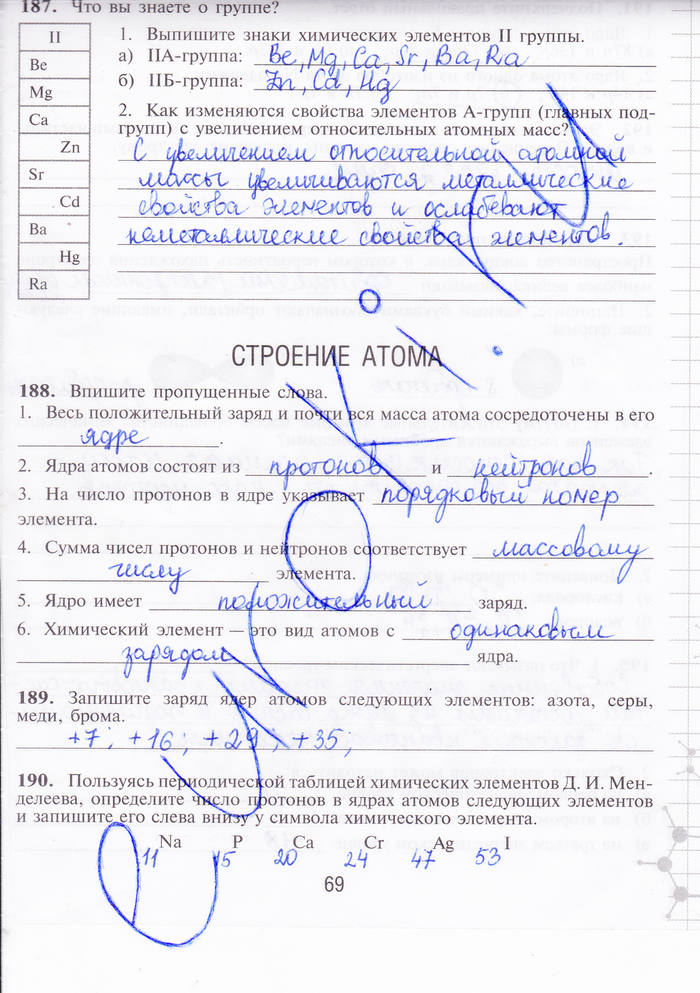 187. Что вы знаете о группе?
II
Be
Mg
Ca
Zn
Sr
Cd
Ba
Hg
Ra
1. Выпишите знаки химических элементов II группы.
а) IIА-группа: Be, Mg, Ca, Sr, Ba, Ra
б) IIБ-группа: Zn, Cd, Hg
2. Как изменяются свойства элементов А-групп (главных под-
групп) с увеличением относительных атомных масс?
С увеличением относительной атомной
массы увеличиваются металлические
свойства элементов и ослабевают
неметаллические свойства элементов.
СТРОЕНИЕ АТОМА
188. Впишите пропущенные слова.
1. Весь положительный заряд и почти вся масса атома сосредоточены в его
ядре.
2. Ядра атомов состоят из протонов и нейтронов.
3. На число протонов в ядре указывает порядковый номер
элемента.
4. Сумма чисел протонов и нейтронов соответствует массовому
числу элемента.
5. Ядро имеет положительный заряд.
6. Химический элемент — это вид атомов с одинаковым
зарядом ядра.
189. Запишите заряд ядер атомов следующих элементов: азота, серы,
меди, брома.
+7; +16; +29; +35;
190. Пользуясь периодической таблицей химических элементов Д. И. Мен-
делеева, определите число протонов в ядрах атомов следующих элементов
и запишите его слева внизу у символа химического элемента.
Na P Ca Cr Ag I
11 15 20 24 47 53
69